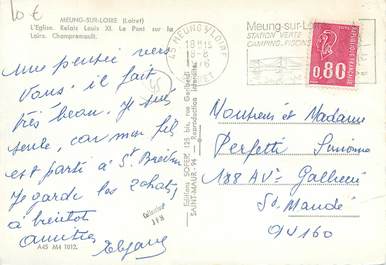 10€
MEUNG-SUR-LOIRE (Loiret)
L'Eglise. Relais Louis XI. Le Pont sur la
Loire. Champremault.
Une pensée vers
Vous. il fait
très beau. Je suis
seule, car mon fils
est parti à St Brévin
Je garde les 2 chats,
à bientôt
amitiés
A45 M4 1012.
Editions SOFER, 125 bis, rue Garibaldi
SAINT-MAUR - 94 - Reproduction interdite
45 MEUNG S/ LOIRE
18H15
LOIRET
Meung-sur-Loire
STATION VERTE
CAMPING. PISCINE
POSTES
0,80
Monsieur et Madame
Perfetti
188 Av. Gallieni
St. Mandé
94160